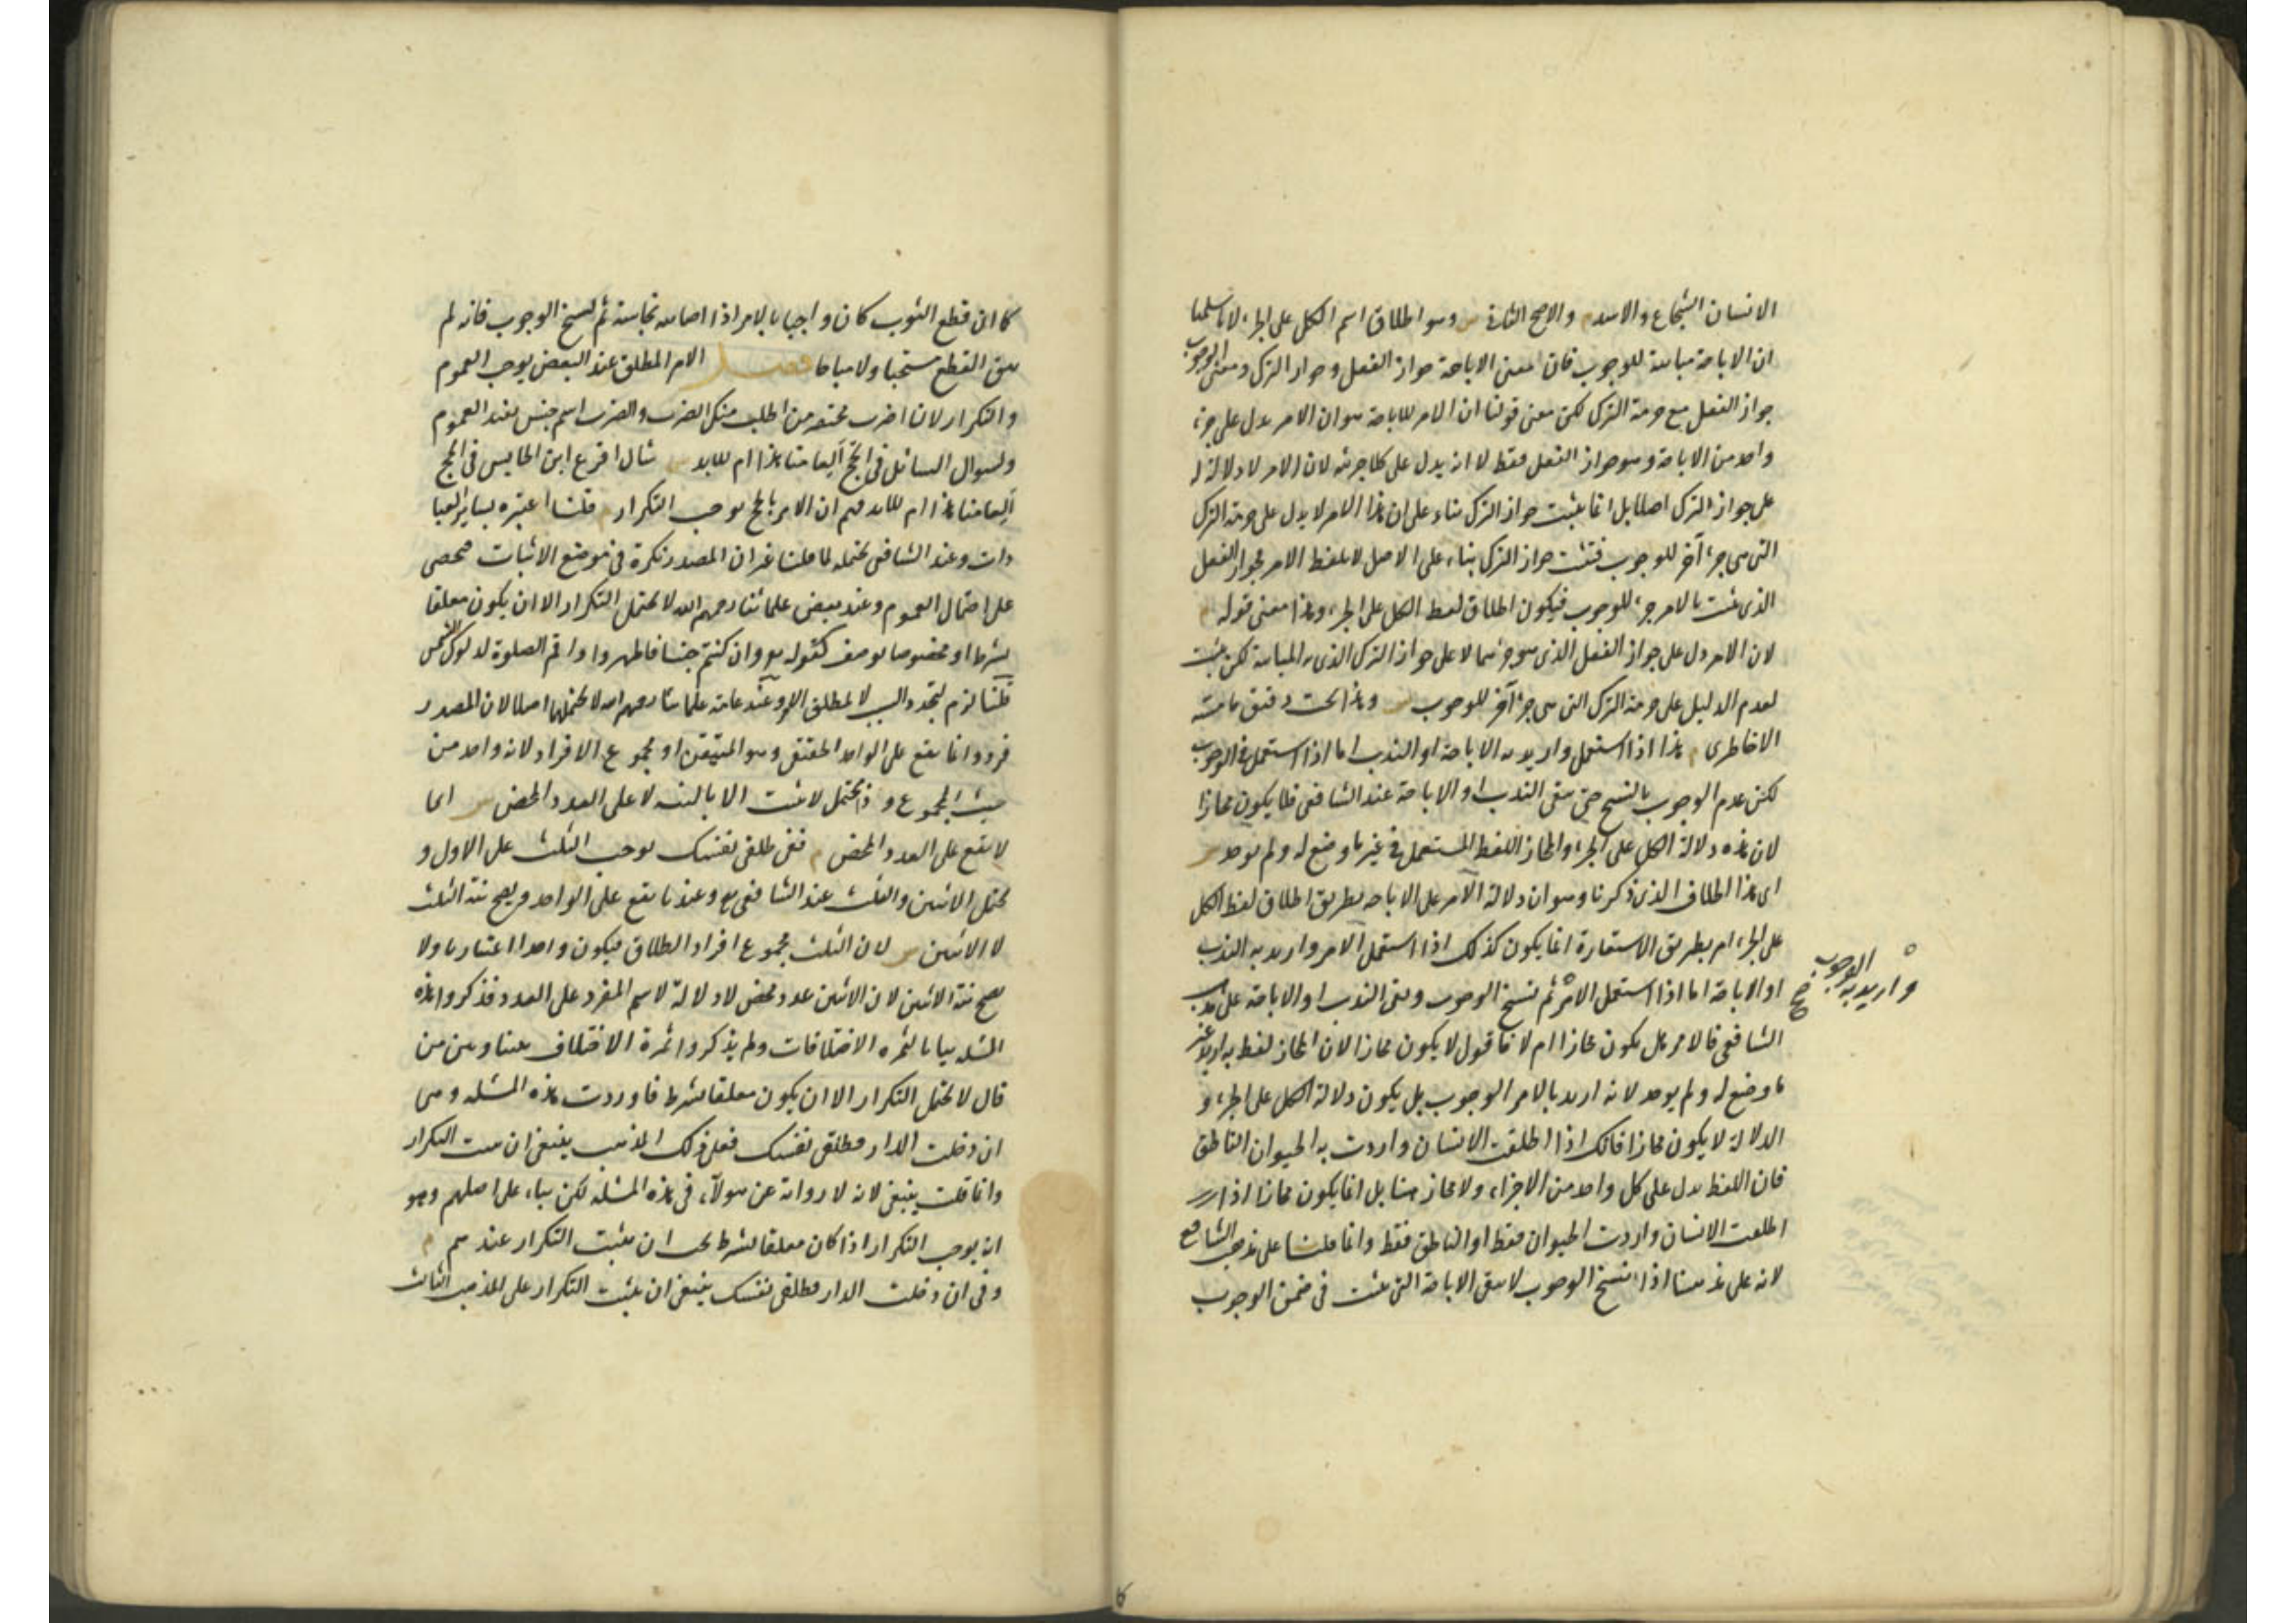 الانسان الشجاع والاسد م والاصح الثانى ش وهو اطلاق اسم الكل على الجزء لانا سلمنا
ان الاباحة مباينة للوجوب فان معنى الاباحة جواز الفعل وجواز الترك ومعنى الوجوب
جواز الفعل مع حرمة الترك لكن معنى قولنا ان الامر للاباحة هو ان الامر يدل على جزء
واحد من الاباحة وهو جواز الفعل فقط لا انه يدل على كلا جزئيه لان الامر لا دلالة له
على جواز الترك اصلا بل انما يثبت جواز الترك بناء على ان هذا الامر لا يدل على حرمة الترك
التى هى جزء آخر للوجوب فيثبت جواز الترك بناء على الاصل لا بلفظ الامر فجواز الفعل
الذى يثبت بالامر جزء للوجوب فيكون اطلاق لفظ الكل على الجزء وهذا معنى قوله م
لان الامر دل على جواز الفعل الذى هو جزئهما لا على جواز الترك الذى به المباينة لكن يثبت
لعدم الدليل على حرمة الترك التى هى جزء آخر للوجوب ش وهذا بحث دقيق ما مسه
الا خاطرى م هذا اذا استعمل واريد به الاباحة او الندب اما اذا استعمل فى الوجوب
لكن عدم الوجوب بالنسخ حتى يبقى الندب او الاباحة عند الشافعى فلا يكون مجازا
لان هذه دلالة الكل على الجزء والمجاز اللفظ المستعمل فى غير ما وضع له ولم يوجد ش
اى هذا الاطلاق الذى ذكرنا وهو ان دلالة الامر على الاباحة بطريق اطلاق لفظ الكل
على الجزء ام بطريق الاستعارة انما يكون كذلك اذا استعمل الامر واريد به الندب
او الاباحة اما اذا استعمل الامر ثم نسخ الوجوب وبقى الندب او الاباحة على مذهب
واريد به الوجوب صح
الشافعى فالامر هل يكون مجازا ام لا فاقول لا يكون مجازا لان المجاز لفظ اريد به غير
ما وضع له ولم يوجد لانه اريد بالامر الوجوب بل يكون دلالة الكل على الجزء و
الدلالة لا يكون مجازا فانك اذا اطلقت الانسان واردت به الحيوان الناطق
فان اللفظ يدل على كل واحد من الاجزاء ولا مجاز هنا بل انما يكون مجازا اذا
اطلقت الانسان واردت الحيوان فقط او الناطق فقط وانما قلنا على مذهب الشافعى
لانه على مذهبنا اذا نسخ الوجوب لا يبقى الاباحة التى يثبت فى ضمن الوجوب
كما ان قطع الثوب كان واجبا بالامر اذا اصابته نجاسة ثم نسخ الوجوب فانه لم
يبق القطع مستحبا ولا مباحا فصل الامر المطلق عند البعض يوجب العموم
والتكرار لان اضرب مختصر من اطلب منك الضرب والضرب اسم جنس يفيد العموم
ولسؤال السائل فى الحج ألعامنا هذا ام للابد ش سأل اقرع ابن الحابس فى الحج
ألعامنا هذا ام للابد فهم ان الامر بالحج يوجب التكرار م قلنا اعتبره بسائر العبا
دات وعند الشافعى يحتمله لما قلنا غير ان المصدر نكرة فى موضع الاثبات فيخص
على احتمال العموم وعند بعض علمائنا رحمهم الله لا يحتمل التكرار الا ان يكون معلقا
بشرط او مخصوصا بوصف كقوله تع وان كنتم جنبا فاطهروا واقم الصلوة لدلوك الشمس
قلنا لزم لتجدد السبب لا لمطلق الامر وعند عامة علمائنا رحمهم الله لا يحتملها اصلا لان المصدر
فرد وانما يقع على الواحد الحقيقى وهو المتيقن او مجموع الافراد لانه واحد من
حيث المجموع وذا محتمل لا يثبت الا بالنية لا على العدد المحض ش اى
لا يقع على العدد المحض م ففى طلقى نفسك يوجب الثلث على الاول و
يحتمل الاثنين والثلث عند الشافعى رح وعندنا يقع على الواحد ويصح نية الثلث
لا الاثنين ش لان الثلث مجموع افراد الطلاق فيكون واحدا اعتباريا ولا
يصح نية الاثنين لان الاثنين عدد محض لا دلالة لاسم المفرد على العدد فذكروا هذه
المسئلة بيانا لثمرة الاختلافات ولم يذكروا ثمرة الاختلاف بيننا وبين من
قال لا يحتمل التكرار الا ان يكون معلقا بشرط فاوردت هذه المسئلة وهى
ان دخلت الدار فطلقى نفسك فعلى ذلك المذهب ينبغى ان يثبت التكرار
وانما قلت ينبغى لانه لا رواية عن هؤلاء فى هذه المسئلة لكن بناء على اصلهم وهو
انه يوجب التكرار اذا كان معلقا بشرط يجب ان يثبت التكرار عندهم م
وفى ان دخلت الدار فطلقى نفسك ينبغى ان يثبت التكرار على المذهب الثالث